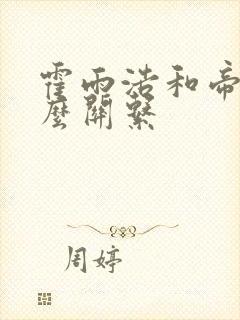 霍雨浩和帝
麼關繫
周婷